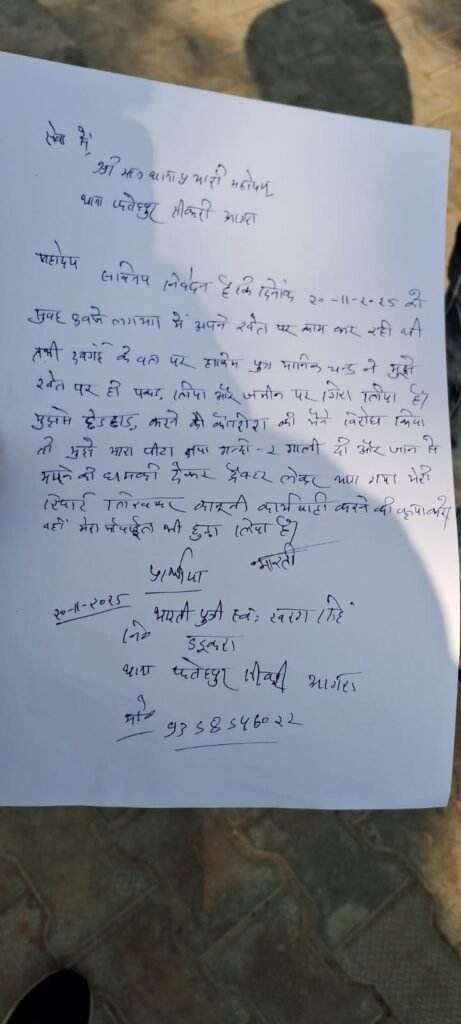 सेवा में,
श्री मान थाना प्रभारी महोदय
थाना फतेहपुर सीकरी आगरा
महोदय सविनय निवेदन है कि दिनांक २०-११-२०२५ को
सुबह 8 बजे लगभग मैं अपने खेत पर काम कर रही थी
तभी दबंगई के बल पर हाकिम पुत्र मानिक चन्द ने मुझे
खेत पर ही पकड़ लिया और जमीन पर गिरा लिया है।
मुझसे छेडछाड़ करने की कोशिश की मैंने विरोध किया
तो मुझे मारा पीटा तथा गन्दी-२ गाली दी और जान से
मारने की धमकी देकर ट्रैक्टर लेकर भाग गया मेरी
रिपोर्ट लिखकर कानूनी कार्यवाही करने की कृपा करें
वहीं मेरा मोबाईल भी छुड़ा लिया है।
प्रार्थीया भारती
२०-११-२०२५
भारती पुत्री स्व: सिंह
नि०
थाना फतेहपुर सीकरी आगरा
मो०